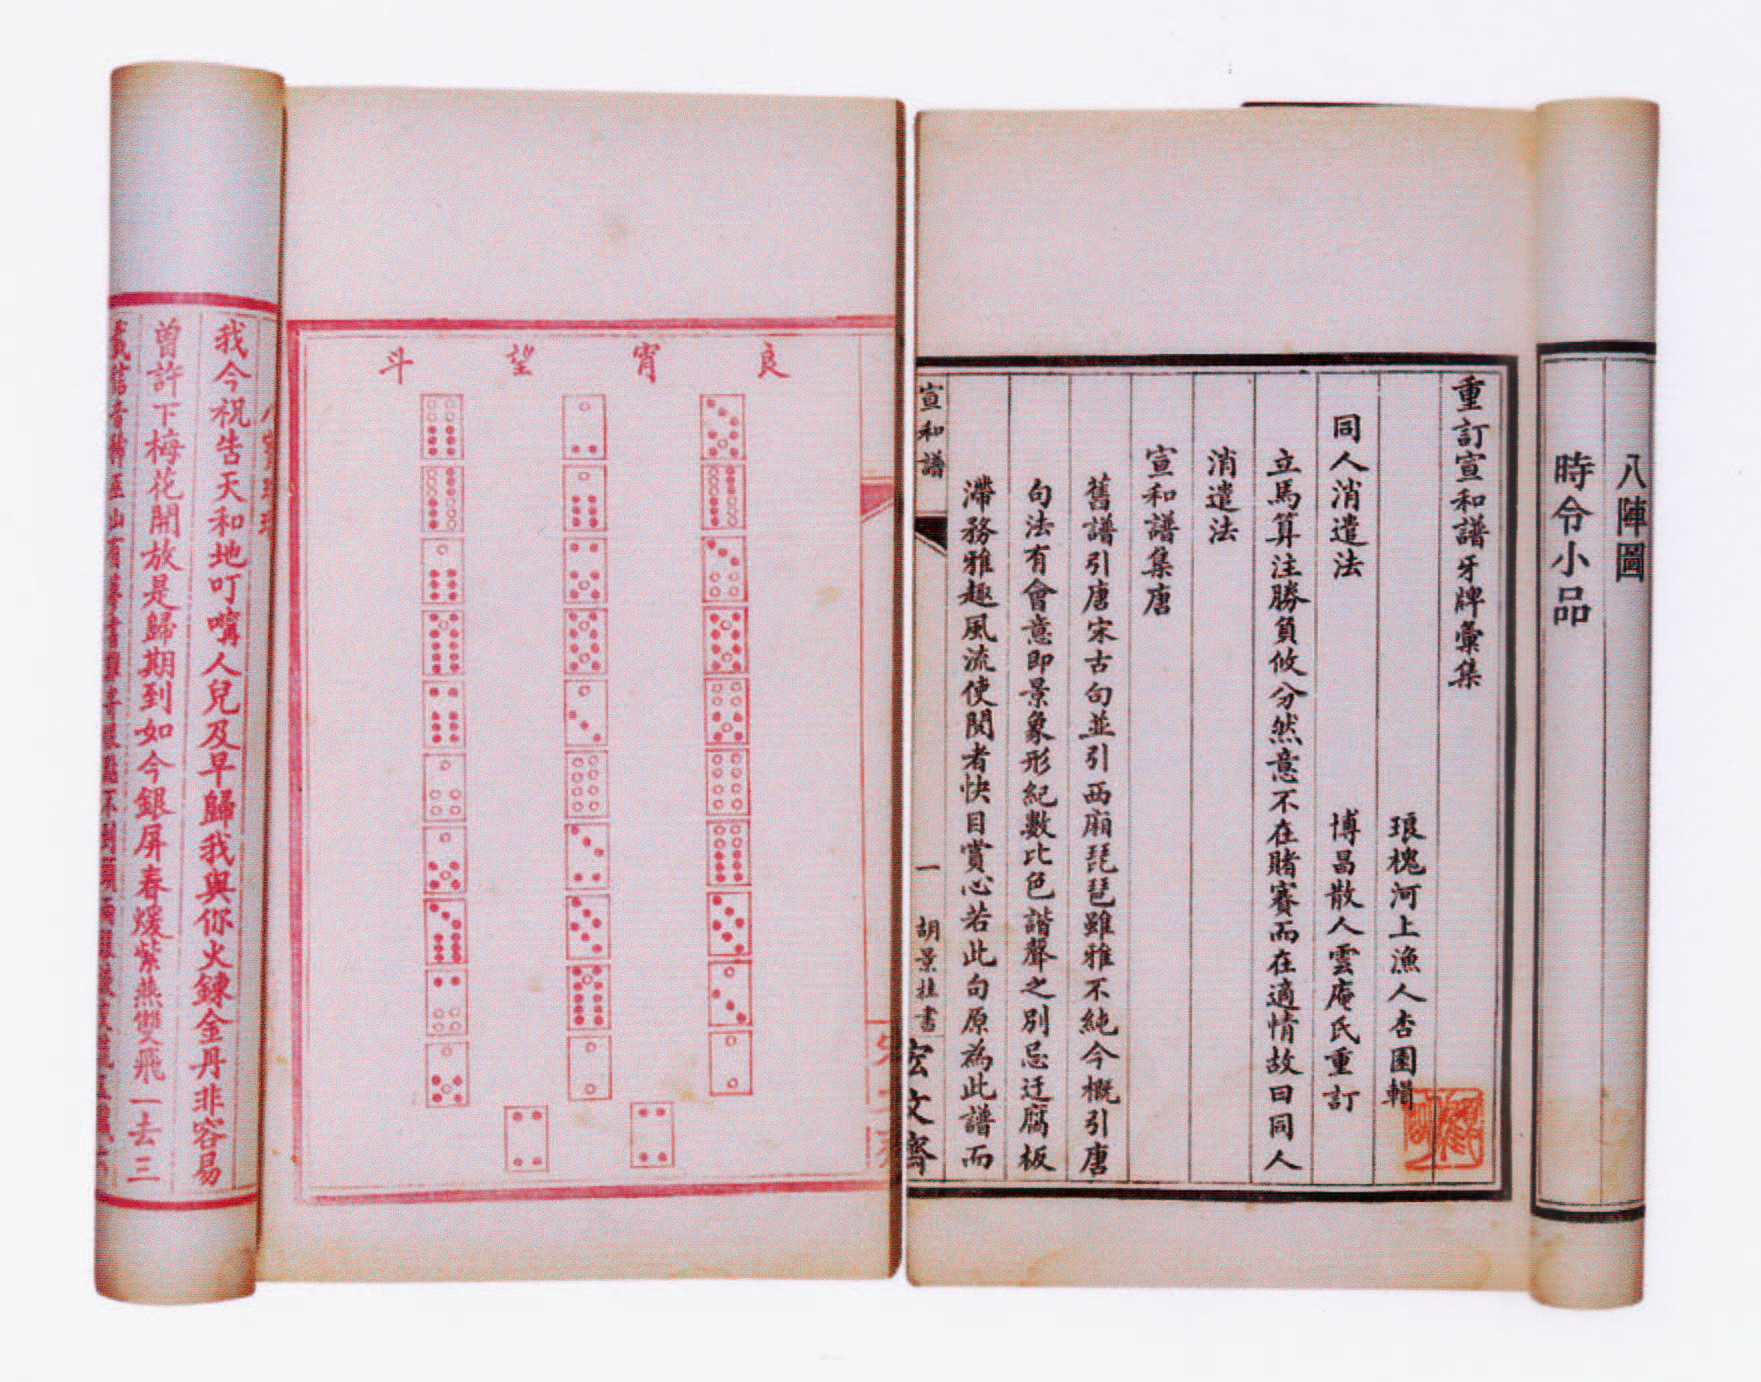 八陣圖
時令小品
重訂宣和譜牙牌彙集
琅槐河上漁人杏園輯
同人消遣法 博昌散人雲庵氏重訂
立馬算注勝負攸分然意不在賭賽而在適情故曰同人
消遣法
宣和譜集唐
舊譜引唐宋古句並引西廂琵琶雖雅不純今概引唐
句法有會意即景象形紀數比色諧聲之別忌迂腐板
滯務雅趣風流使閱者快目賞心若此句原為此譜而
宣和譜 一 胡景桂書 宏文齋
良宵望斗
我今祝告天和地叮嚀人兒及早歸我與你火鍊金丹非容易
曾許下梅花開放是歸期到如今銀屏春煖紫燕雙飛一去三